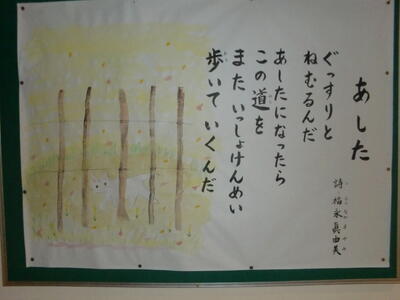 あした
詩 福永眞由美
ぐっすりと
ねむるんだ
あしたになったら
この道を
また いっしょけんめい
歩いて いくんだ